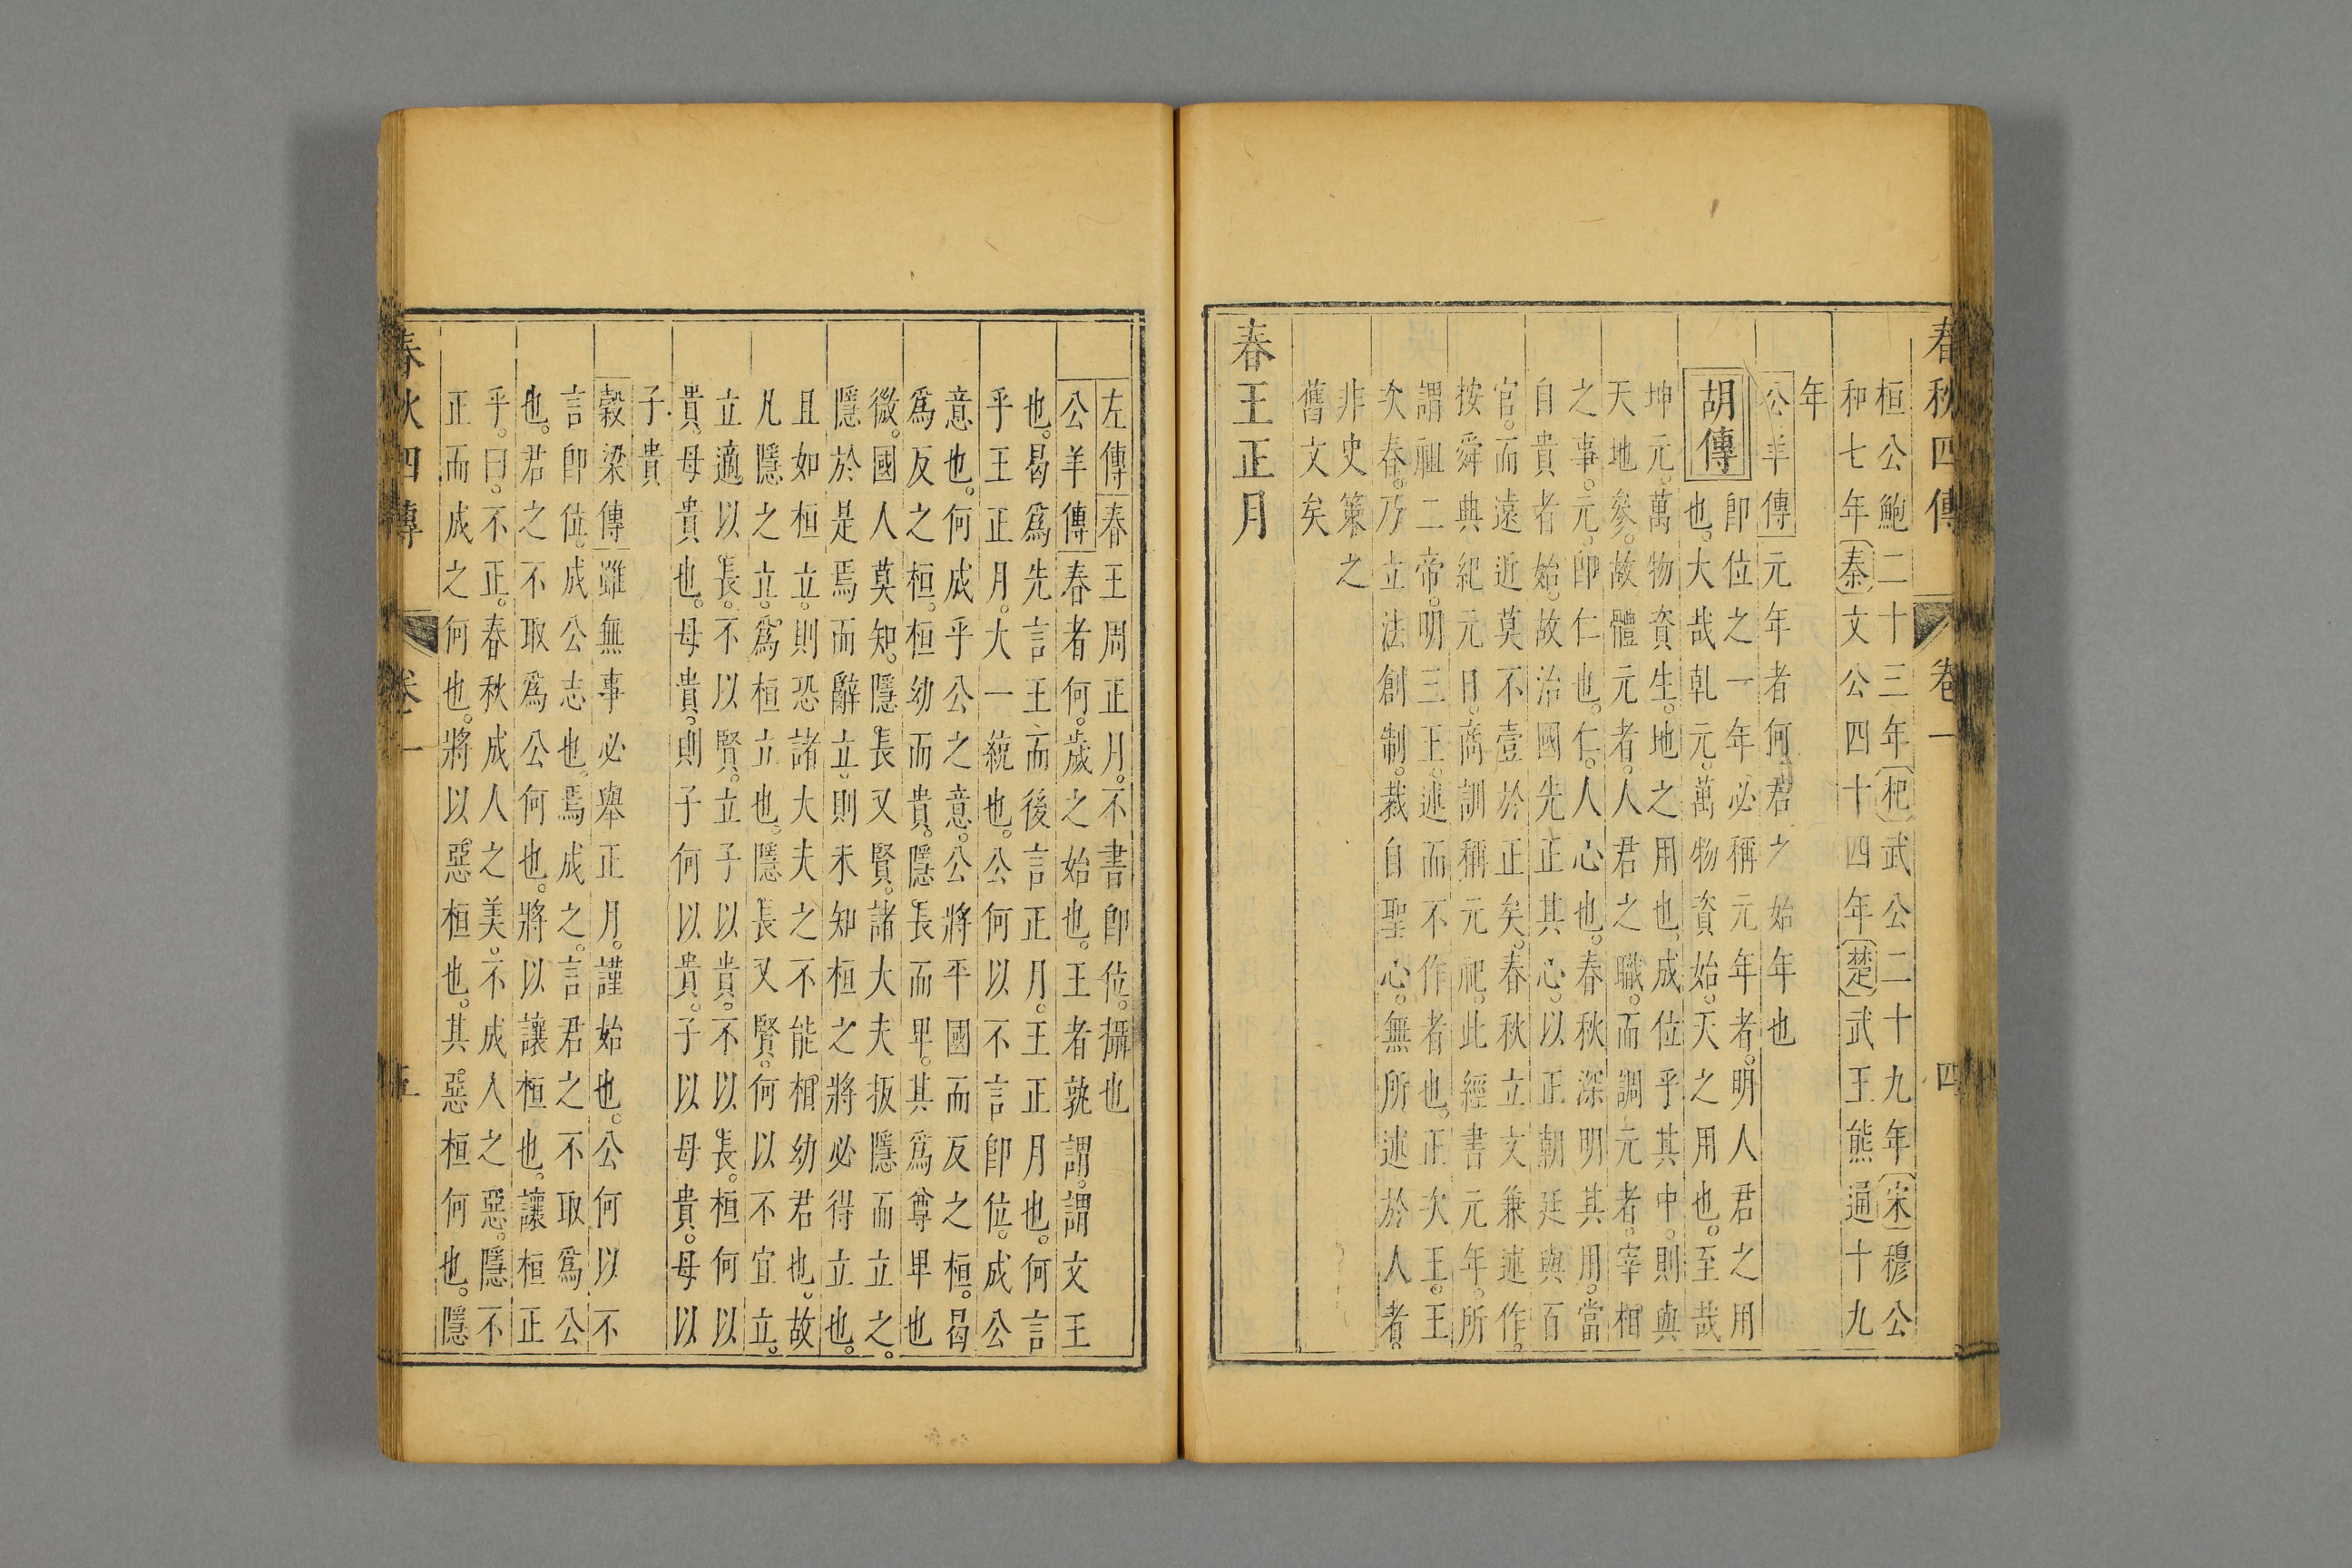 春秋四傳 卷一 四
桓公鮑二十三年杞武公二十九年宋穆公
和七年秦文公四十四年楚武王熊通十九
年
公羊傳元年者何君之始年也
胡傳
即位之一年必稱元年者。明人君之用
也。大哉乹元。萬物資始。天之用也。至哉
坤元。萬物資生。地之用也。成位乎其中。則與
天地參。故體元者。人君之職。而調元者。宰相
之事。元。即仁也。仁。人心也。春秋深明其用。當
自貴者始。故治國先正其心。以正朝廷與百
官。而遠近莫不壹於正矣。春秋立文兼述作。
按舜典紀元日。商訓稱元祀。此經書元年。所
謂祖二帝。明三王。述而不作者也。正次王。王
次春。乃立法創制。裁自聖心。無所述於人者。
非史策之
舊文矣
春王正月
左傳春王周正月。不書卽位。攝也
公羊傳春者何。歲之始也。王者孰謂。謂文王
也。曷爲先言王而後言正月。王正月也。何言
乎王正月。大一統也。公何以不言卽位。成公
意也。何成乎公之意。公將平國而反之桓。曷
爲反之桓。桓幼而貴。隱長而卑。其爲尊卑也
微。國人莫知。隱長又賢。諸大夫扳隱而立之。
隱於是焉而辭立。則未知桓之將必得立也。
且如桓立。則恐諸大夫之不能相幼君也。故
凡隱之立。爲桓立也。隱長又賢。何以不宜立。
立適以長。不以賢。立子以貴。不以長。桓何以
貴。母貴也。母貴。則子何以貴。子以母貴。母以
子貴
穀梁傳雖無事必舉正月。謹始也。公何以不
言卽位。成公志也。焉成之。言君之不取爲公
也。君之不取爲公何也。將以讓桓也。讓桓正
乎。曰。不正。春秋成人之美。不成人之惡。隱不
正而成之何也。將以惡桓也。其惡桓何也。隱
春秋四傳 卷一 五